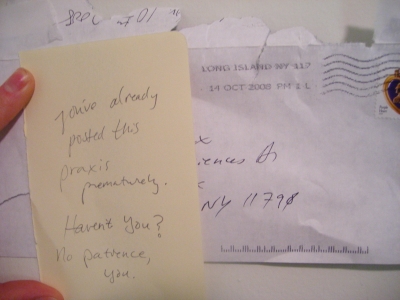 LONG ISLAND NY 117
14 OCT 2008 PM 2 L
You've already
posted this
praxis
prematurely.
Haven't You?
No patience,
you.
NY 11798